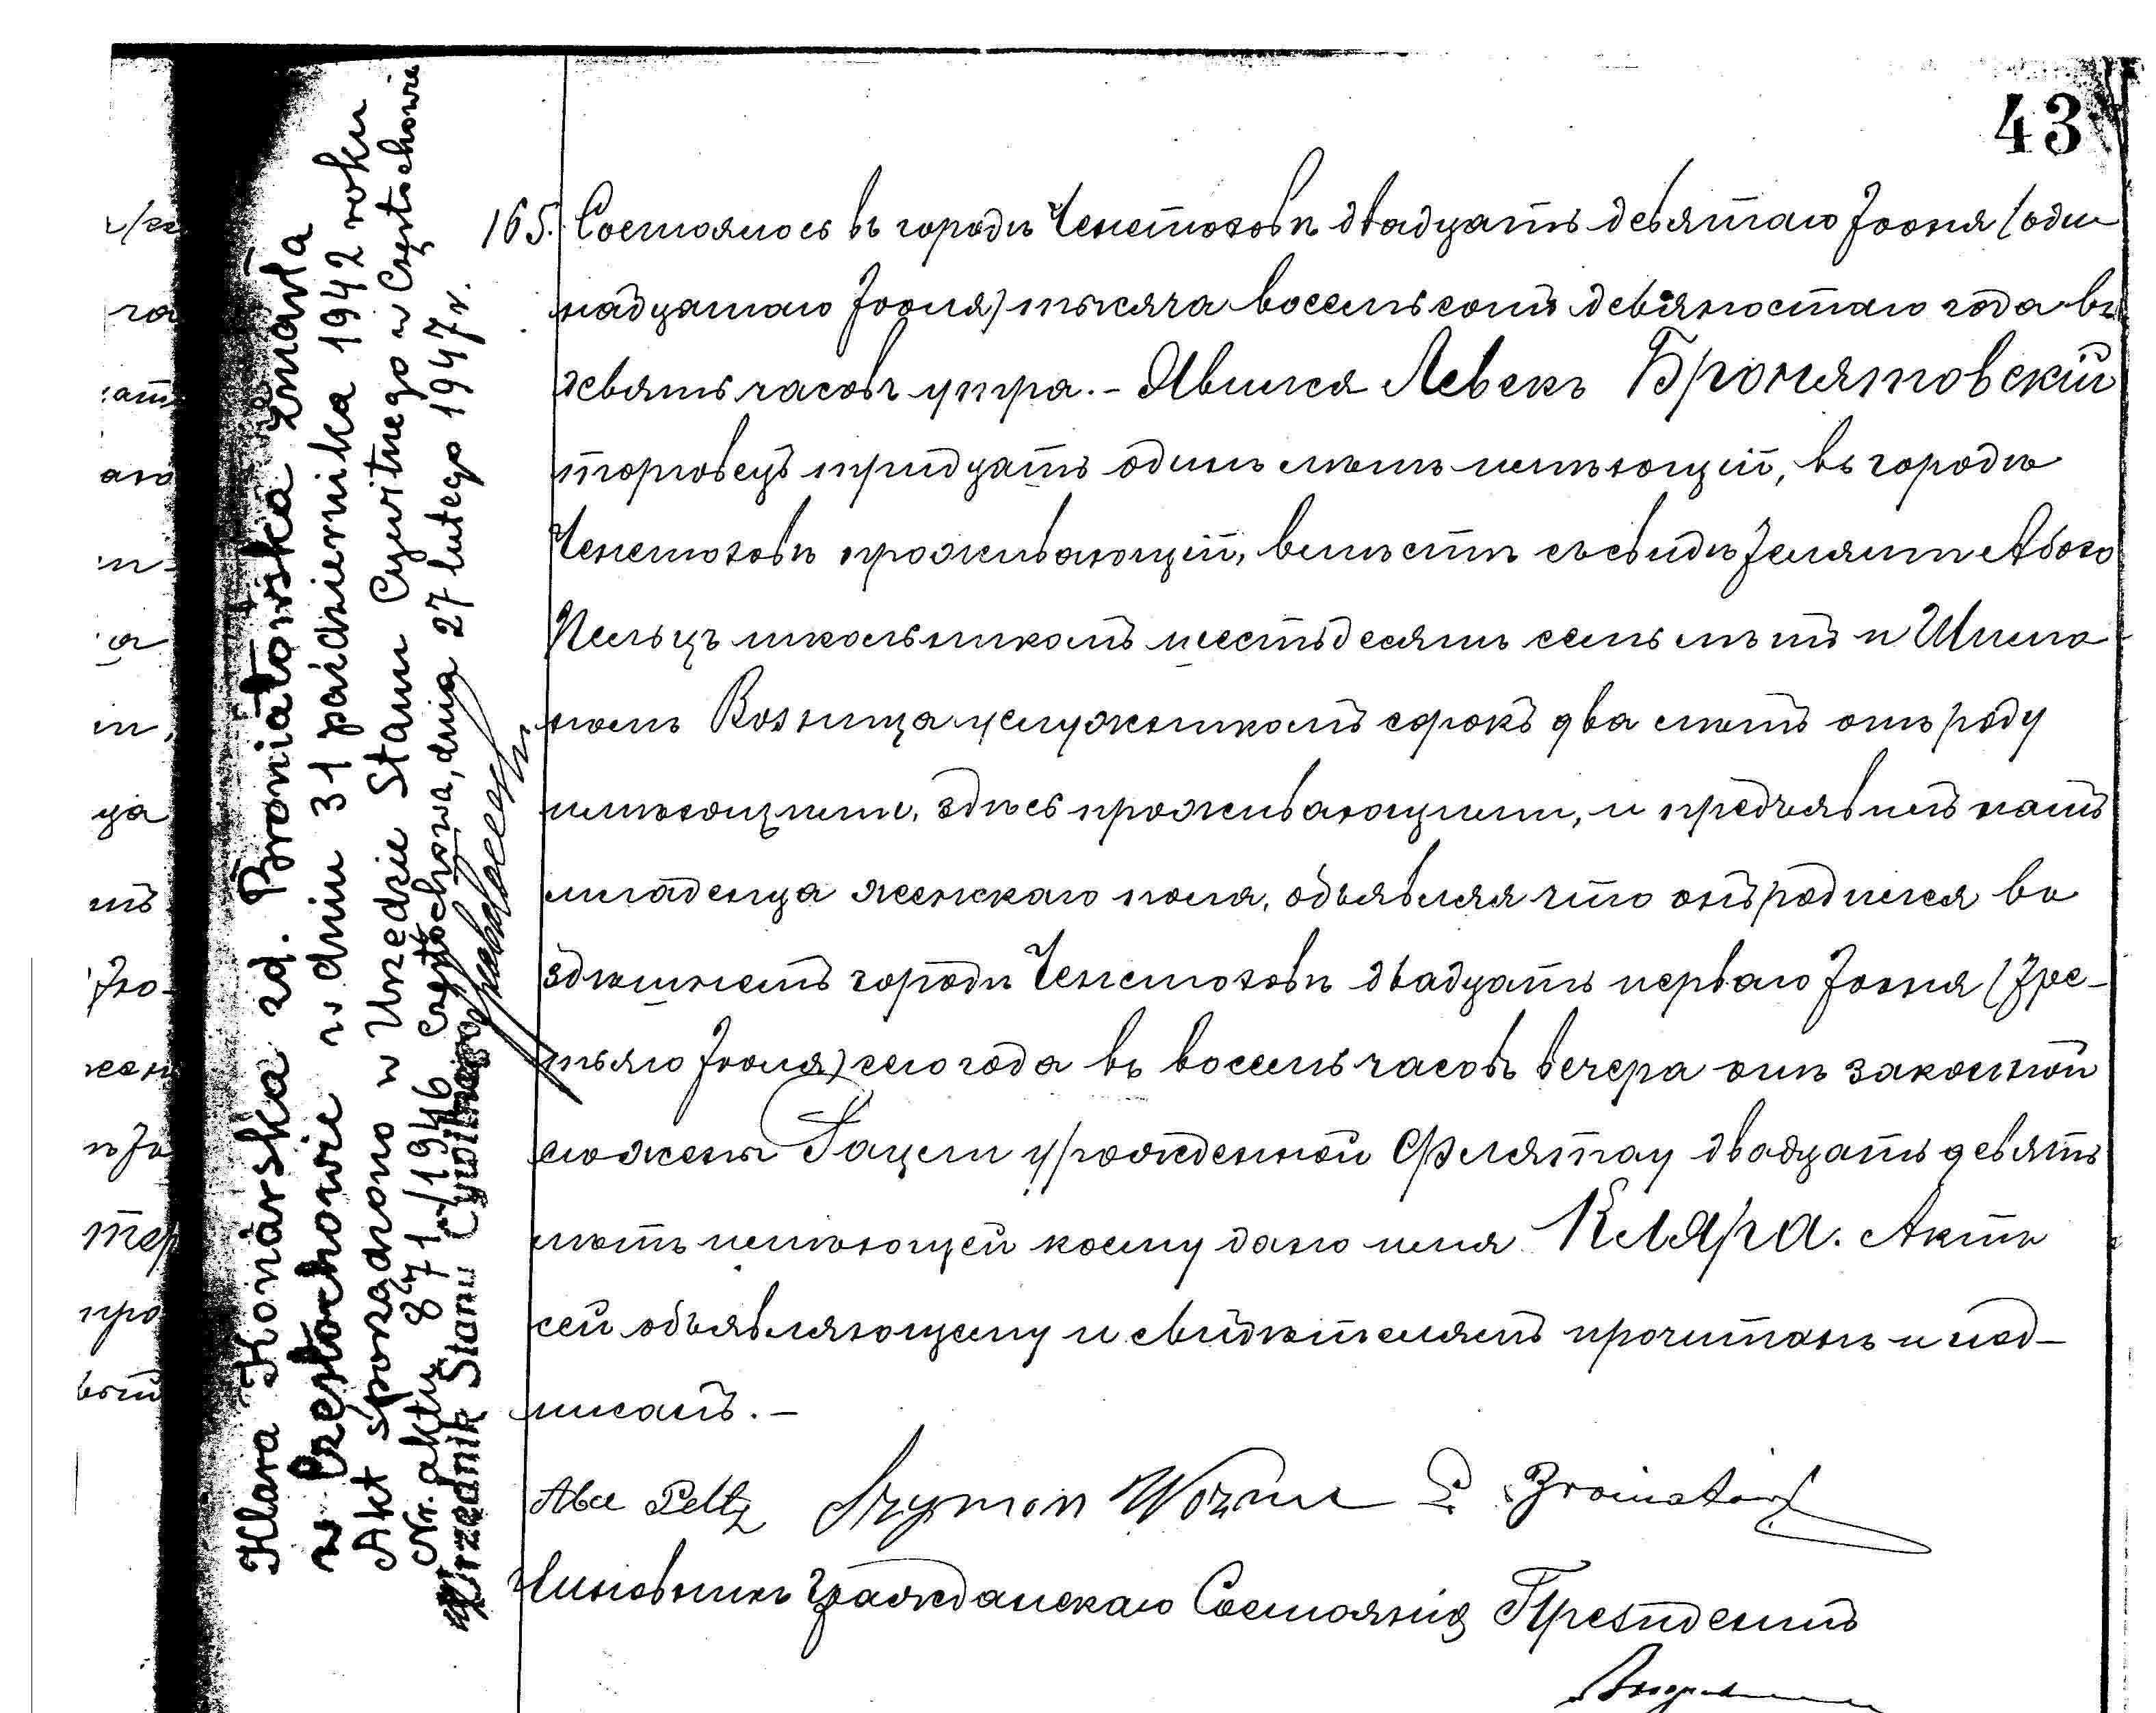 43
165. Состоялось въ городѣ Ченстоховѣ двадцать девятаго Іюня (оди
надцатаго Іюля) тысяча восемьсотъ девяностаго года въ
девять часовъ утра. - Явился Левекъ Бронятовскій
торговецъ тридцать одинъ лѣтъ имѣющій, въ городѣ
Ченстоховѣ проживающій, вмѣстѣ съ свидѣтелями Абою
Пельцъ школьникомъ шестьдесятъ семь лѣтъ и Шимо-
номъ Возница услужникомъ сорокъ два лѣтъ отъ роду
имѣющими, здѣсь проживающими, и предъявилъ намъ
младенца женскаго пола, объявляя что онъ родился въ
здѣшнемъ городѣ Ченстоховѣ двадцать перваго Іюня (Тре-
тьяго Іюля) сего года въ восемь часовъ вечера отъ законной
его жены Гацеи урожденной Флятау двадцать девять
лѣтъ имѣющей коему дано имя Кляра. Актъ
сей объявляющему и свидѣтелямъ прочитанъ и под-
писанъ. -
Aba Peltz Szymon
Чиновникъ Гражданскаго Состоянія Президентъ
Klara Koniarska zd. Broniatowska zmarła
w Częstochowie w dniu 31 października 1942 roku
Akt sporządzono w Urzędzie Stanu Cywilnego w Częstochowie
Nr. aktu 871/1946 Częstochowa, dnia 27 lutego 1947 r.
Urzędnik Stanu Cywilnego